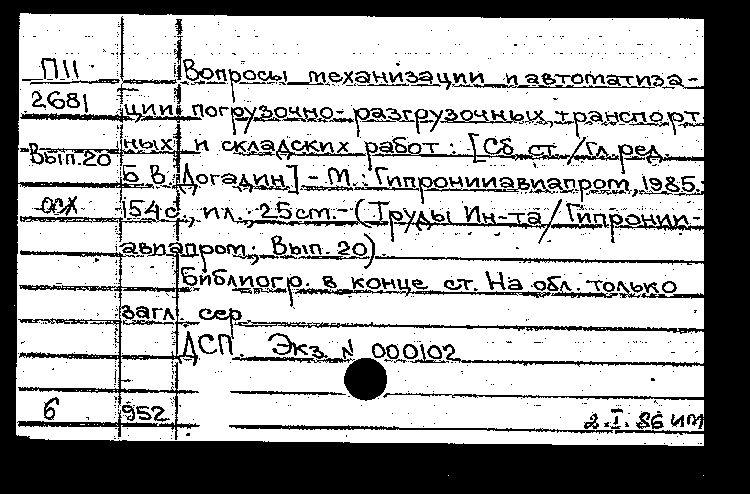 П11 Вопросы механизации и автоматиза-
2681 ции погрузочно-разгрузочных, транспорт
ных и складских работ: [Сб. ст./Гл. ред.
Вып. 20 Б.В. Догадин] - М.: Гипронииавиапром, 1985.-
ОСХ 154 с., ил.; 25 см. - (Труды Ин-та/Гипронии-
авиапром; Вып. 20)
Библиогр. в конце ст. На обл. только
загл. сер.
ДСП. Экз. N 000102
6 952 2.I.86 ИТ